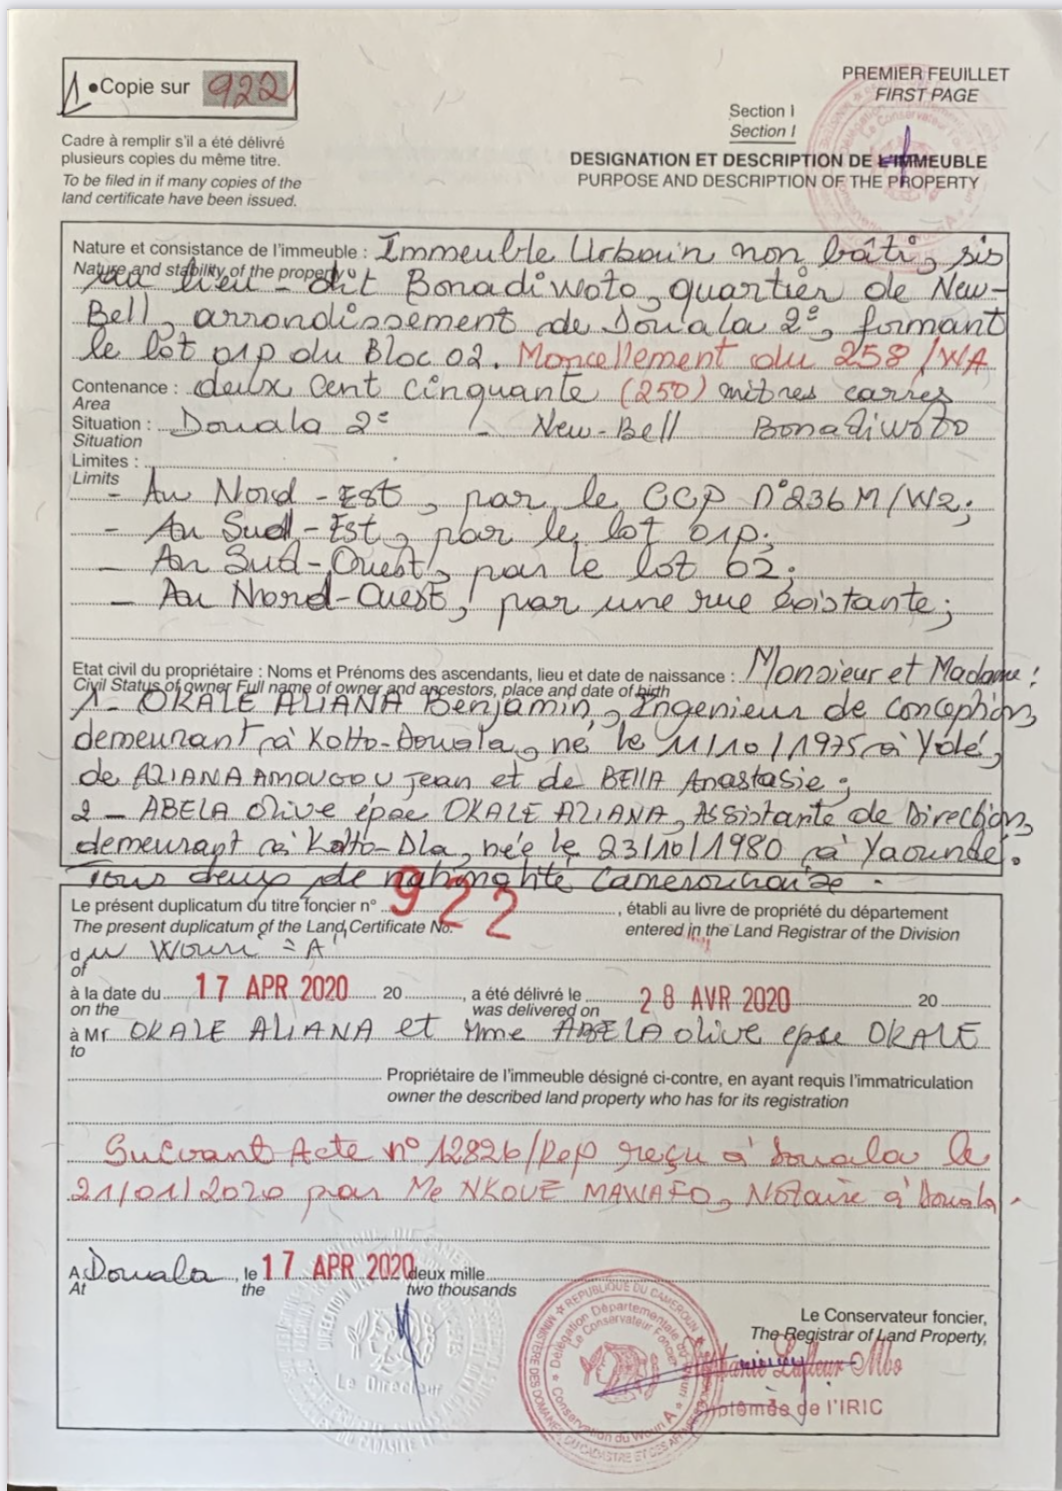 1 •Copie sur 922
PREMIER FEUILLET
FIRST PAGE
Section I
Section I
Cadre à remplir s'il a été délivré
plusieurs copies du même titre.
To be filed in if many copies of the
land certificate have been issued.
DESIGNATION ET DESCRIPTION DE L'IMMEUBLE
PURPOSE AND DESCRIPTION OF THE PROPERTY
Nature et consistance de l'immeuble : Immeuble Urbain non bâti, sis
Nature and stability of the property
au lieu-dit Bonadiwoto, quartier de New-
Bell, arrondissement de Douala 2e, formant
le lot 01p du Bloc 02. Morcellement du 258/WA
Contenance : deux cent cinquante (250) mètres carrés
Area
Situation : Douala 2e - New-Bell Bonadiwoto
Situation
Limites :
Limits
- Au Nord-Est, par le CCP n°236M/W2;
- Au Sud-Est, par le lot 01p;
- Au Sud-Ouest, par le lot 02;
- Au Nord-Ouest, par une rue existante;
Etat civil du propriétaire : Noms et Prénoms des ascendants, lieu et date de naissance : Monsieur et Madame :
Civil Status of owner Full name of owner and ancestors, place and date of birth
1- OKALE ALIANA Benjamin, Ingenieur de conception,
demeurant à Kotto-Douala, né le 11/10/1975 à Ydé,
de ALIANA AMOUGOU Jean et de BELLA Anastasie;
2- ABELA Olive épse OKALE ALIANA, Assistante de Direction,
demeurant à Kotto-Dla, née le 23/10/1980 à Yaoundé.
Tous deux de nationalité Camerounaise.
Le présent duplicatum du titre foncier n° 922, établi au livre de propriété du département
The present duplicatum of the Land Certificate No. entered in the Land Registrar of the Division
du Wouri "A"
of
à la date du 17 APR 2020 20, a été délivré le 28 AVR 2020 20
on the was delivered on
à Mr OKALE ALIANA et Mme ABELA Olive epse OKALE
to
Propriétaire de l'immeuble désigné ci-contre, en ayant requis l'immatriculation
owner the described land property who has for its registration
Suivant Acte n° 12826/Rep reçu à Douala le
21/01/2020 par Me NKOUE MAWAFO, Notaire à Douala.
A Douala, le 17 APR 2020 deux mille
At the two thousands
Le Conservateur foncier,
The Registrar of Land Property,
Le Directeur
REPUBLIQUE DU CAMEROUN
Délégation Départementale du
Le Conservateur Foncier
Conservation du Wouri A
Lafleur Mbo
de l'IRIC